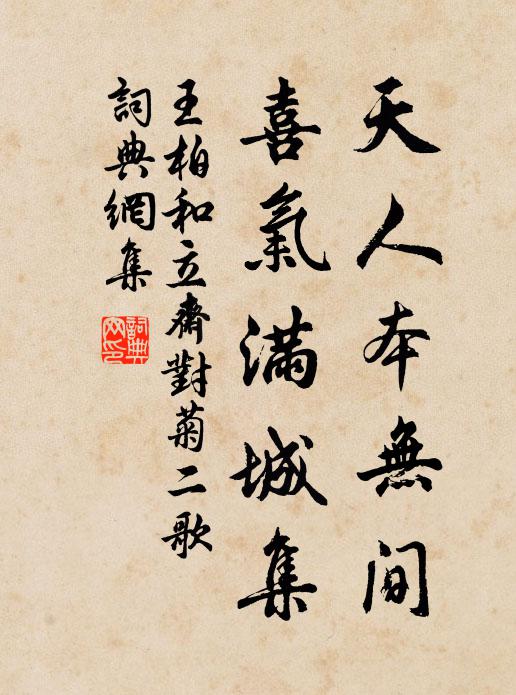 天人本無間
喜氣滿城集
王柏和立齋對菊二歌
詞典網集
詞典網印